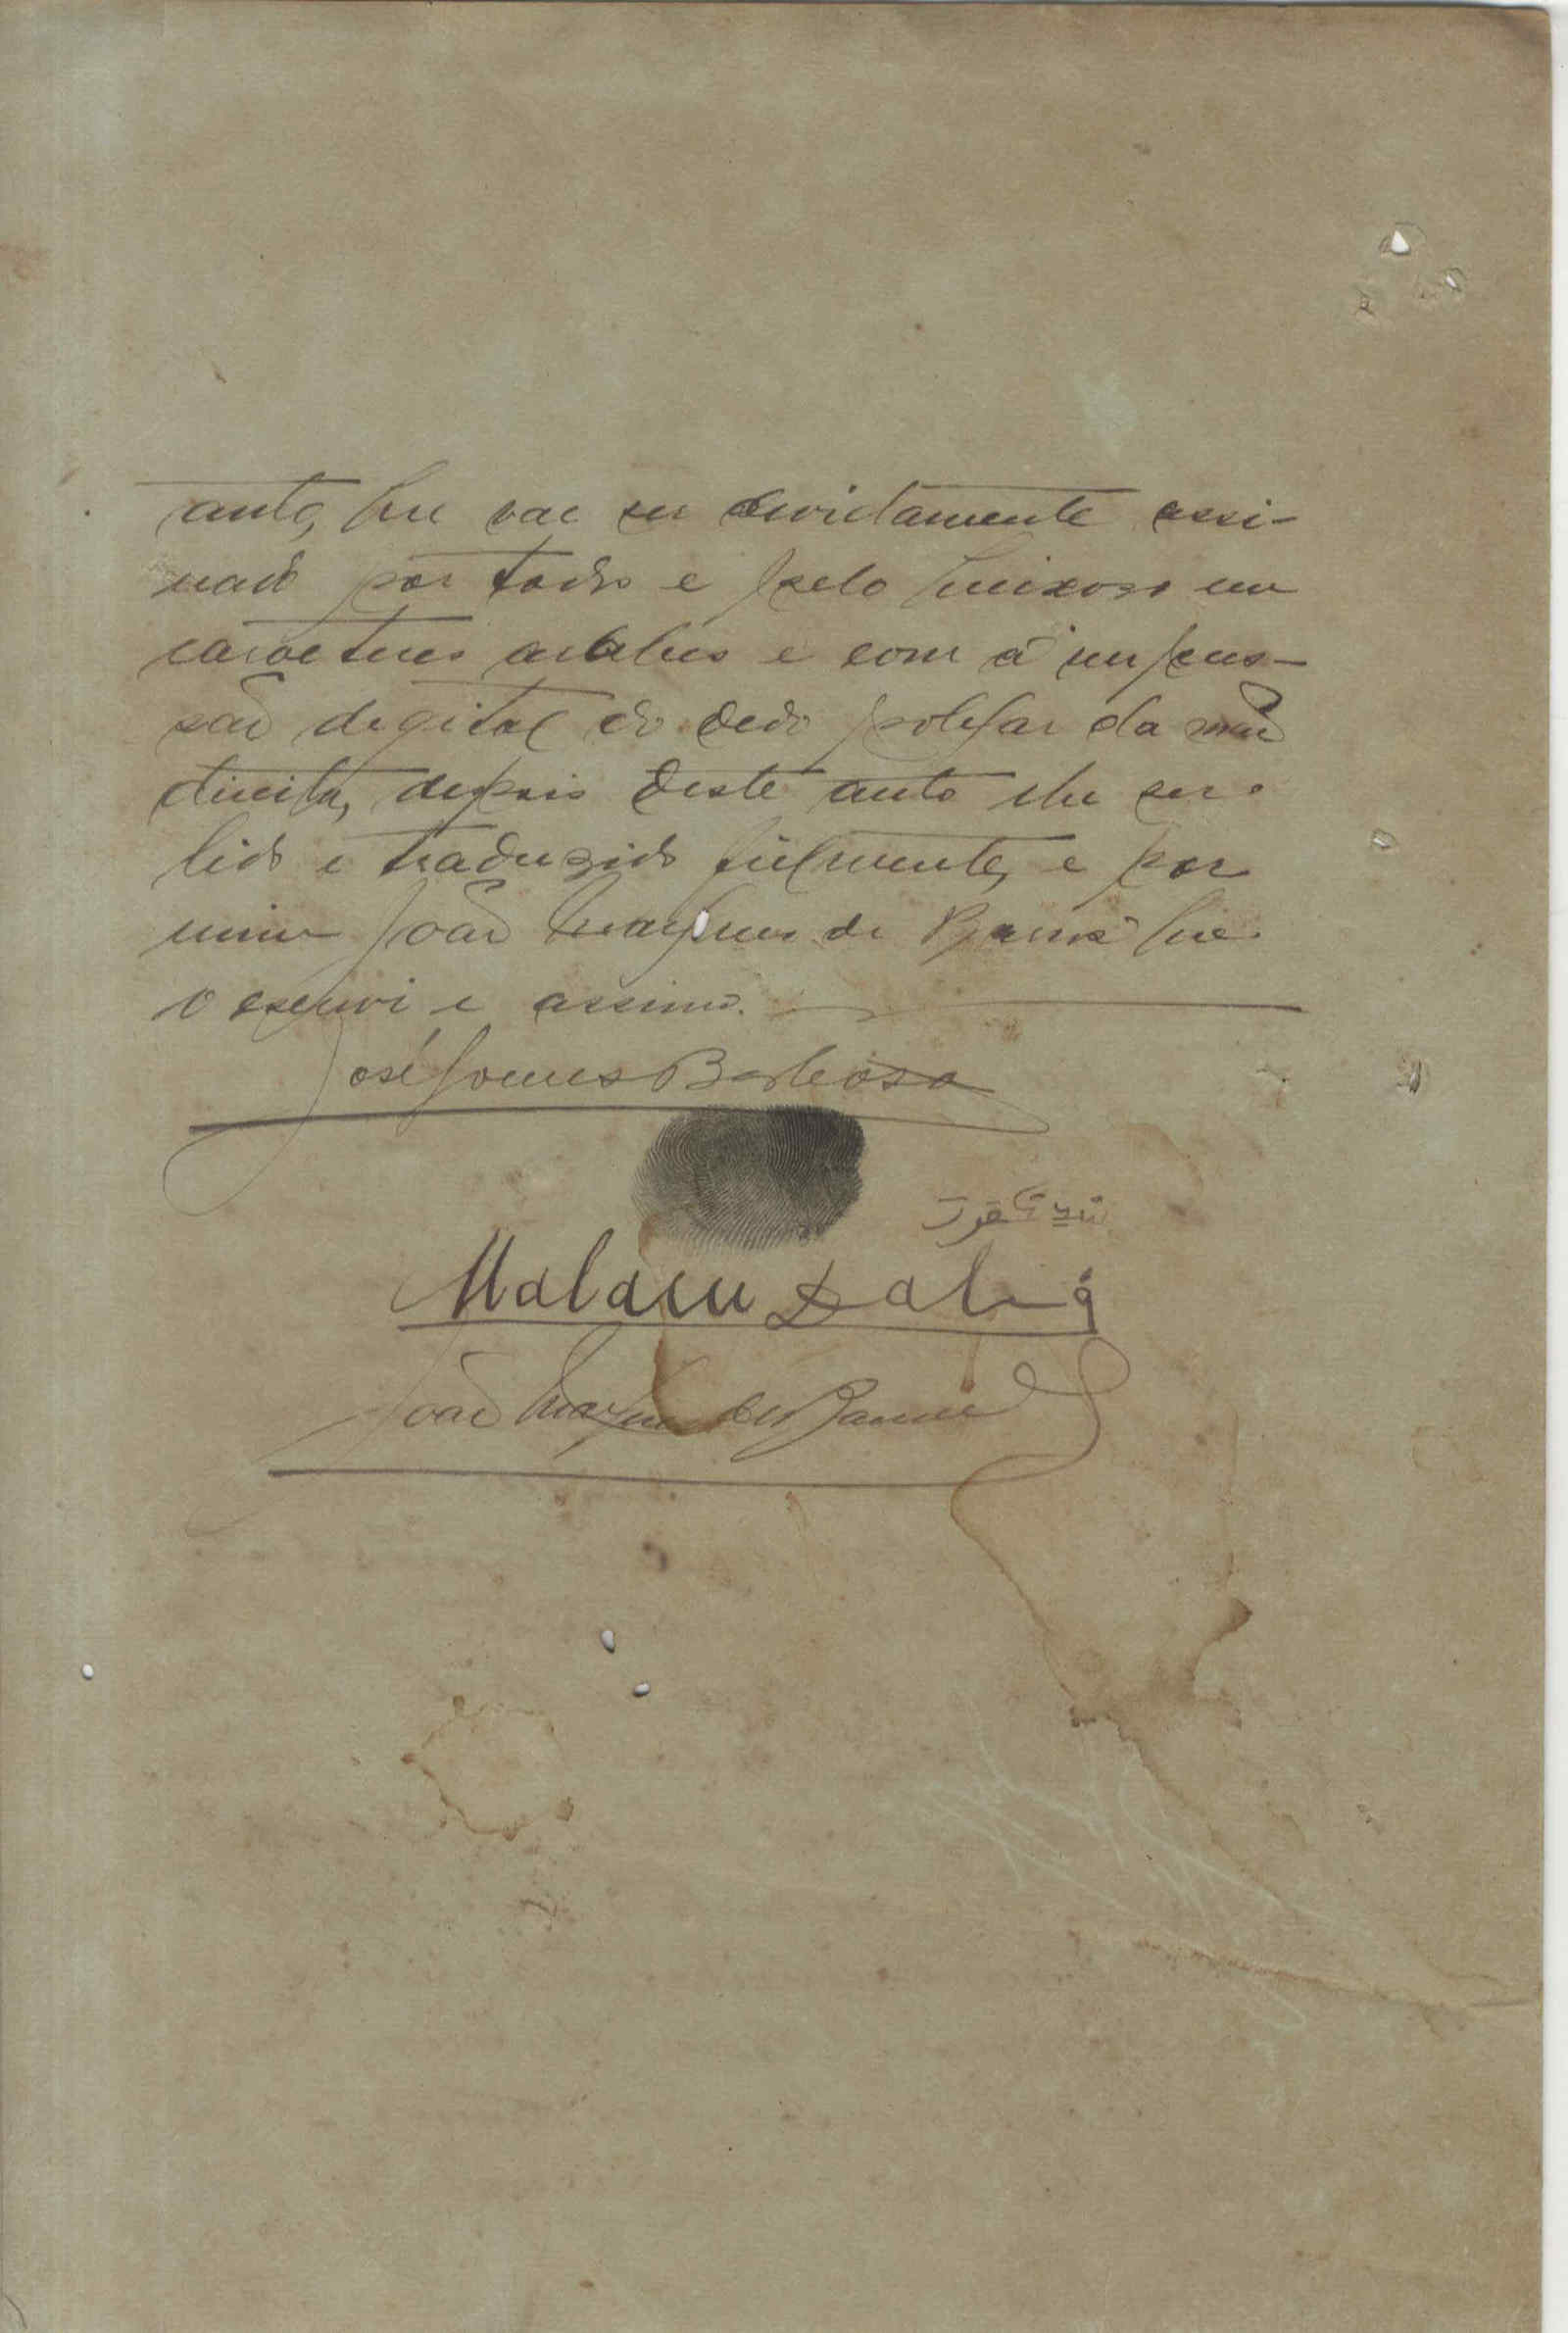 auto, que vae ser devidamente assi-
nado por todos e pelo queixoso em
caracteres arabes e com a impres-
são degital do dedo polegar da mão
direita, depois deste auto lhe ser
lido e traduzido fielmente, e por
mim João Marques de Barros que
o escrevi e assino.
José Gomes Barbosa
Malam
João Marques de Barros